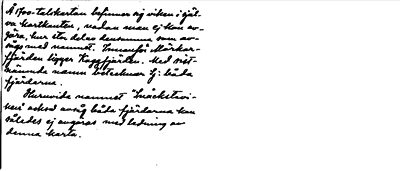 Å 1700-talskartan befinner sig viken i själ-
va kartkanten, medan man ej kan av-
göra, hur stor del av densamma som av-
sågs med namnet. Innanför Mörkar-
fjärden ligger Kaggfjärden. Med sist-
nämnda namn betecknar Lj. båda
fjärdarna.
Huruvida namnet "Snäckstavi-
ken" också avsåg båda fjärdarna kan
således ej avgöras med ledning av
denna karta.